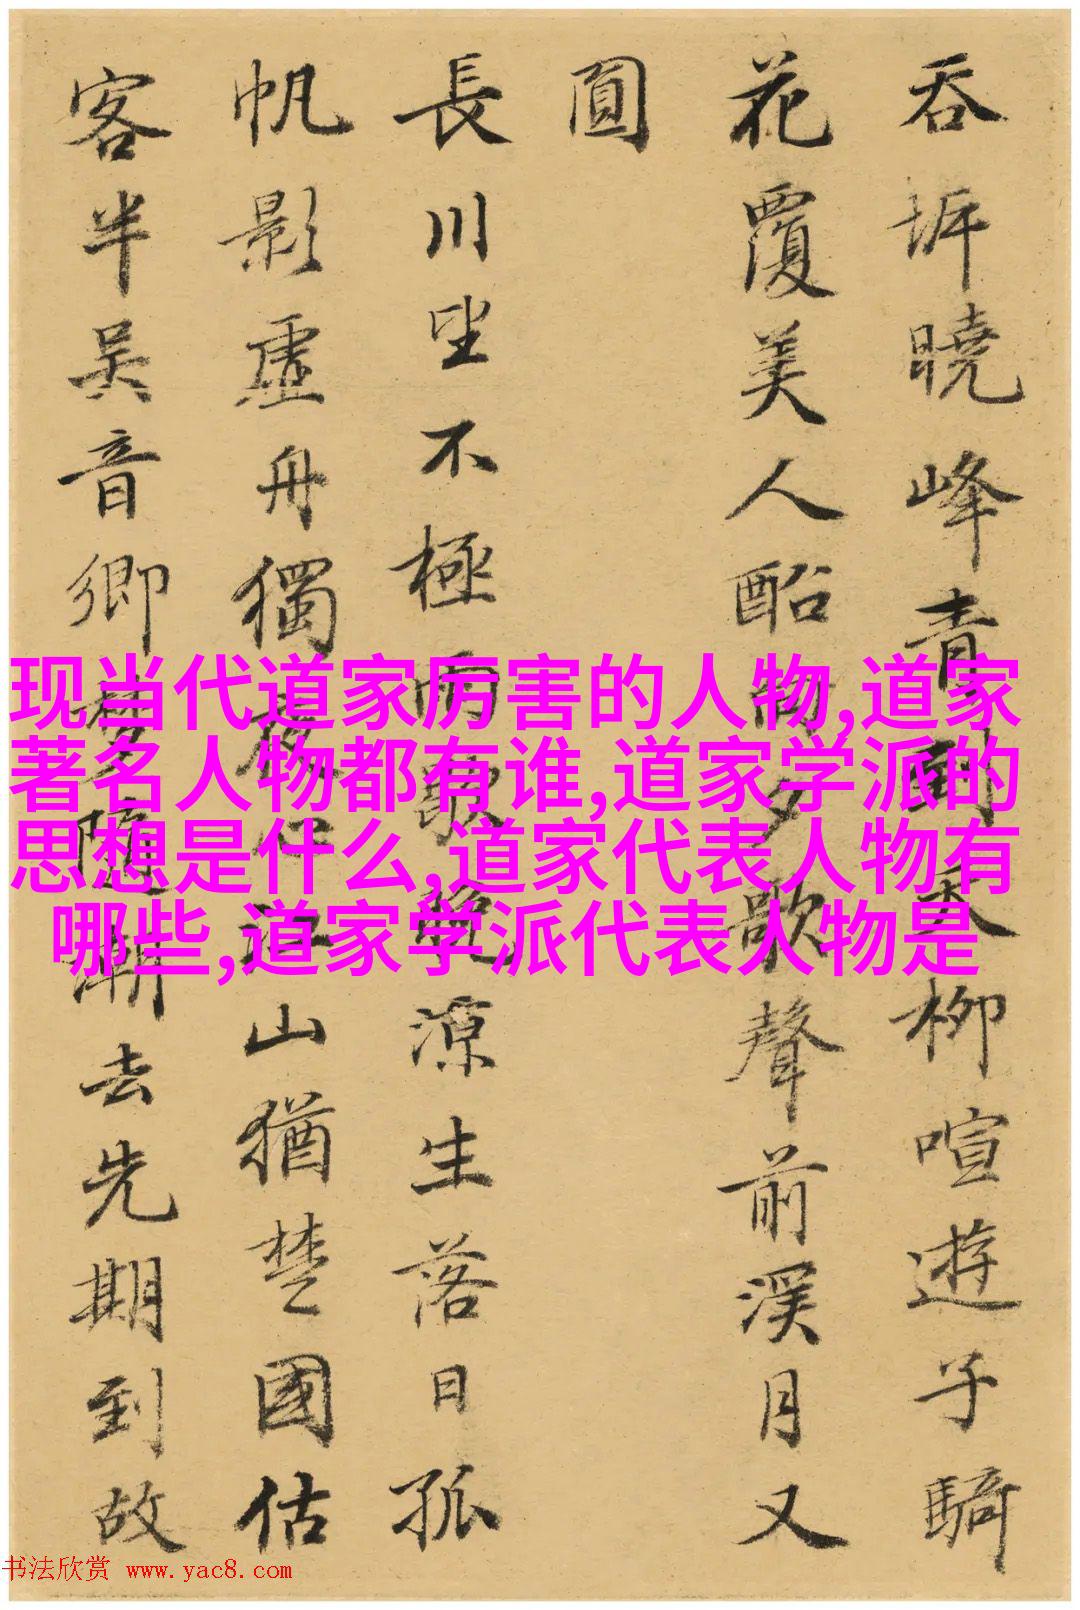 吞坼曉峰青天柳喧遊子騎
花覆美人向夕歌聲前溪月又
圓
長川坐不極雨歇晚涼生落日孤
帆影虛舟獨夜心江山猶楚國估
客半吳音鄉夢隨潮去先期到故
现当代道家厉害的人物,道家
著名人物都有谁,道家学派的
思想是什么,道家代表人物有
哪些,道家学派代表人物是
书法欣赏 www.yac8.com